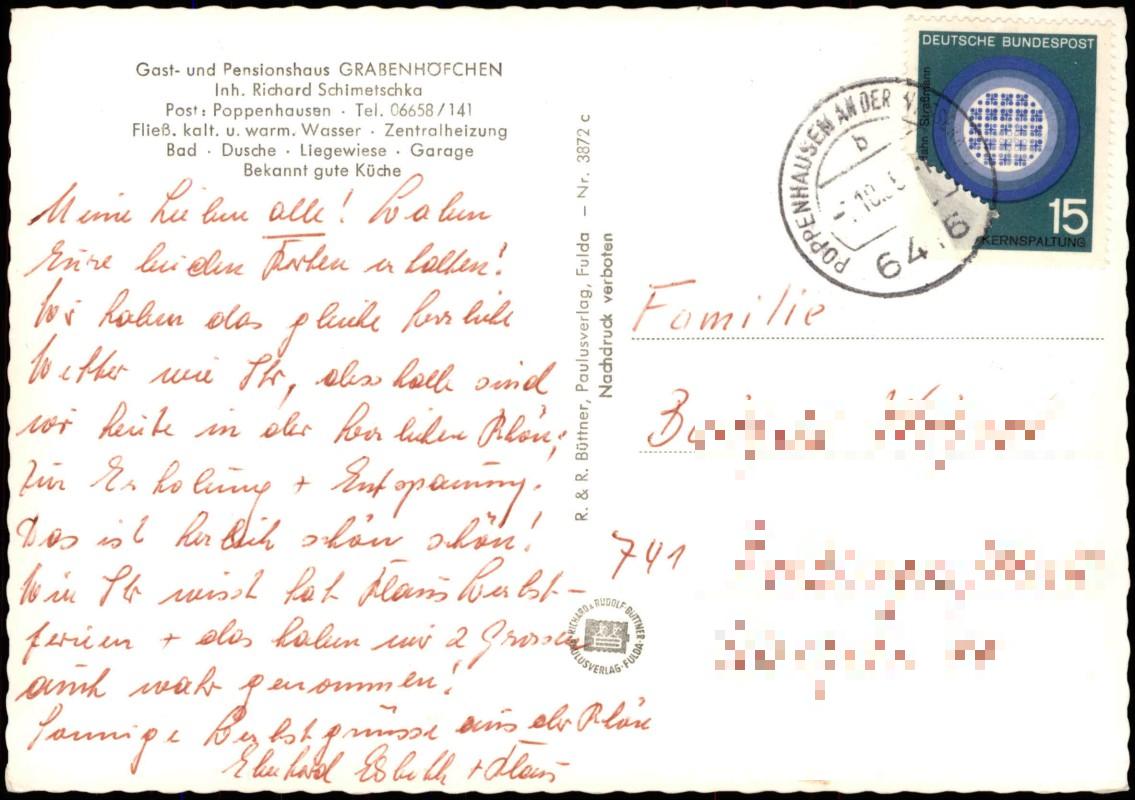 Gast- und Pensionshaus GRABENHÖFCHEN
Inh. Richard Schimetschka
Post: Poppenhausen · Tel. 06658/141
Fließ. kalt. u. warm. Wasser · Zentralheizung
Bad · Dusche · Liegewiese · Garage
Bekannt gute Küche
Meine Lieben alle! Haben
Eure beiden Karten erhalten!
Wir haben das gleiche herrliche
Wetter wie Ihr, deshalb sind
wir heute in der herrlichen Rhön,
zur Erholung + Entspannung.
Das ist herrlich schön schön!
Wie Ihr wisst hat Klaus Herbst-
ferien + das haben wir 2 Grossen
auch wahr genommen!
Sonnige Herbstgrüsse aus der Rhön
Eberhard + Klaus
R. & R. Büttner, Paulusverlag, Fulda – Nr. 3872 c
Nachdruck verboten
RICHARD & RUDOLF BÜTTNER
PAULUSVERLAG · FULDA
DEUTSCHE BUNDESPOST
15
KERNSPALTUNG
POPPENHAUSEN AN DER
b
10.
Familie
741